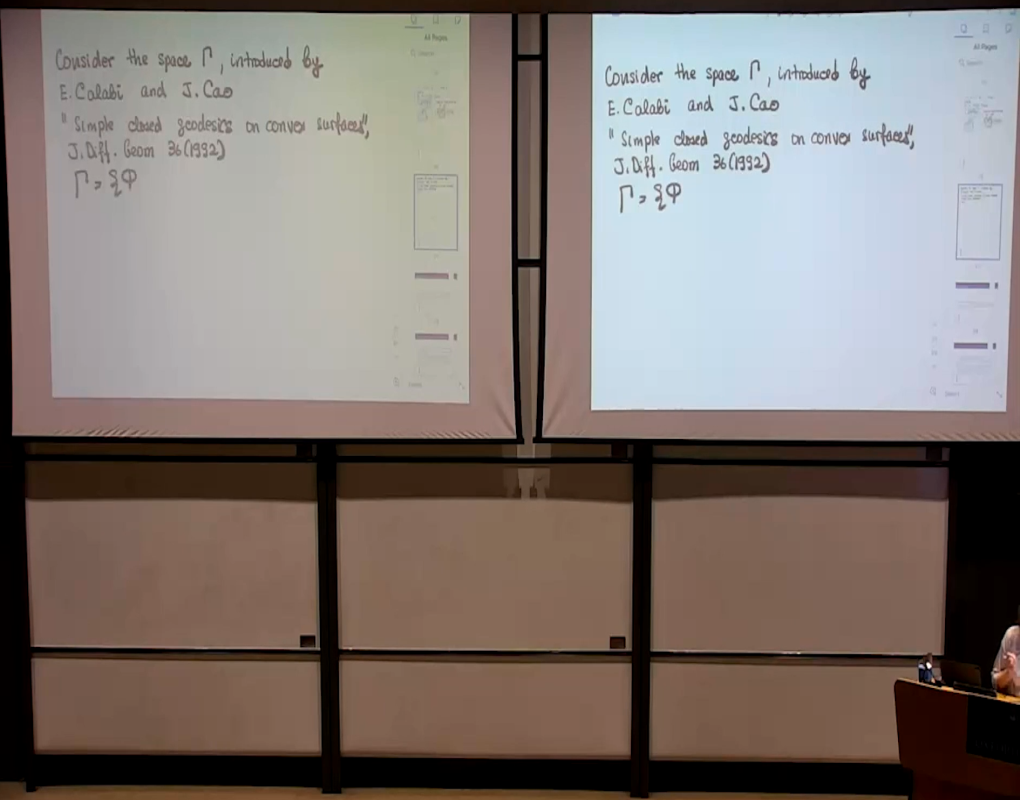 Consider the space Γ, introduced by
E. Calabi and J. Cao
"Simple closed geodesics on convex surfaces",
J. Diff. Geom 36 (1992)
Γ = {Φ
All Pages
Search
Consider the space Γ, introduced by
E. Calabi and J. Cao
"Simple closed geodesics on convex surfaces",
J. Diff. Geom 36 (1992)
Γ = {Φ
All Pages
Search